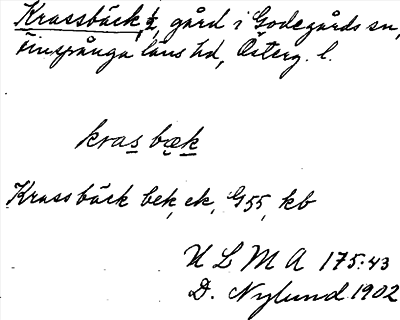 Krassbäck, ½, gård i Godegårds sn,
Finspånga läns hd, Österg. l.
kras bæk
Krassbäck bek, ek, G55, kb
ULMA 175:43
D. Nylund 1902